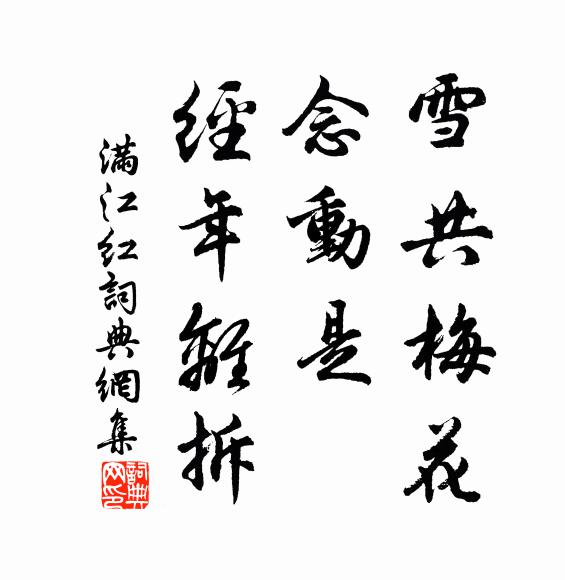 雪共梅花
念動是
經年離拆
滿江紅詞典網集
詞典网印